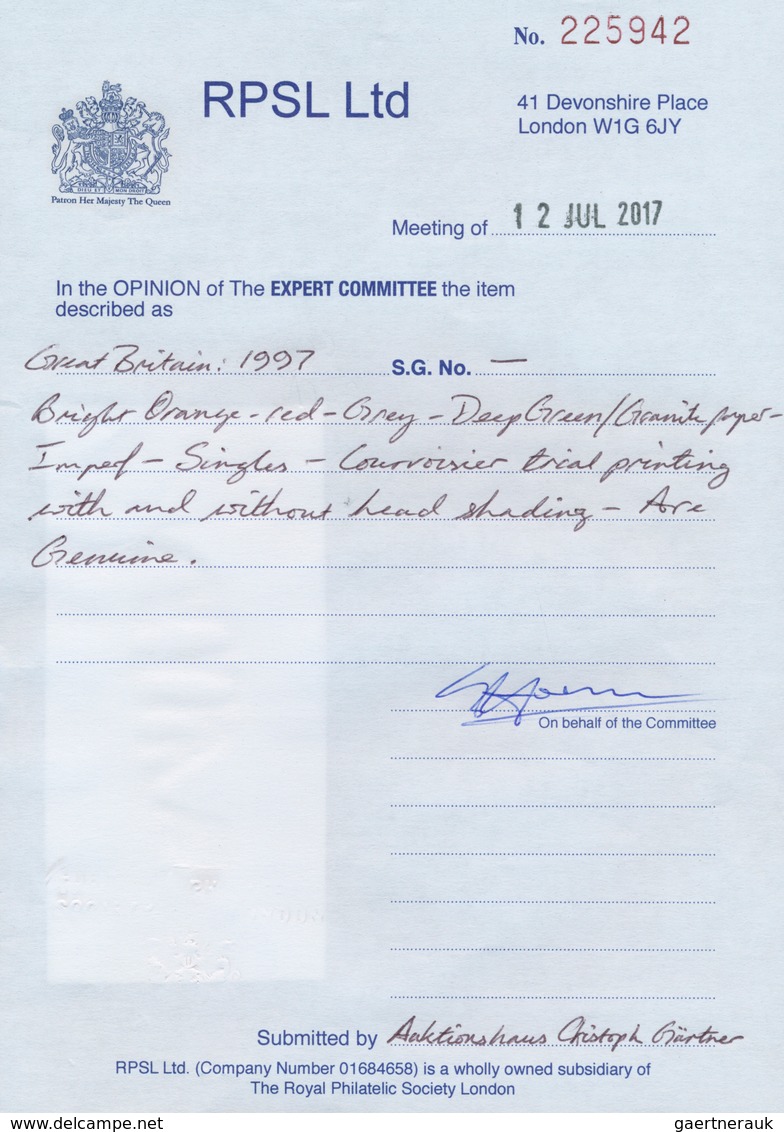 No. 225942
RPSL Ltd
41 Devonshire Place
London W1G 6JY
DIEU ET MON DROIT
Patron Her Majesty The Queen
Meeting of 12 JUL 2017
In the OPINION of The EXPERT COMMITTEE the item
described as
Great Britain: 1997 S.G. No. —
Bright Orange-red-Grey-Deep Green/Granite paper-
Imperf - Singles - Courvoisier trial printing
with and without head shading - Are
Genuine.
On behalf of the Committee
Submitted by Auktionshaus Christoph Gärtner
RPSL Ltd. (Company Number 01684658) is a wholly owned subsidiary of
The Royal Philatelic Society London
www.delcampe.net
gaertnerauk